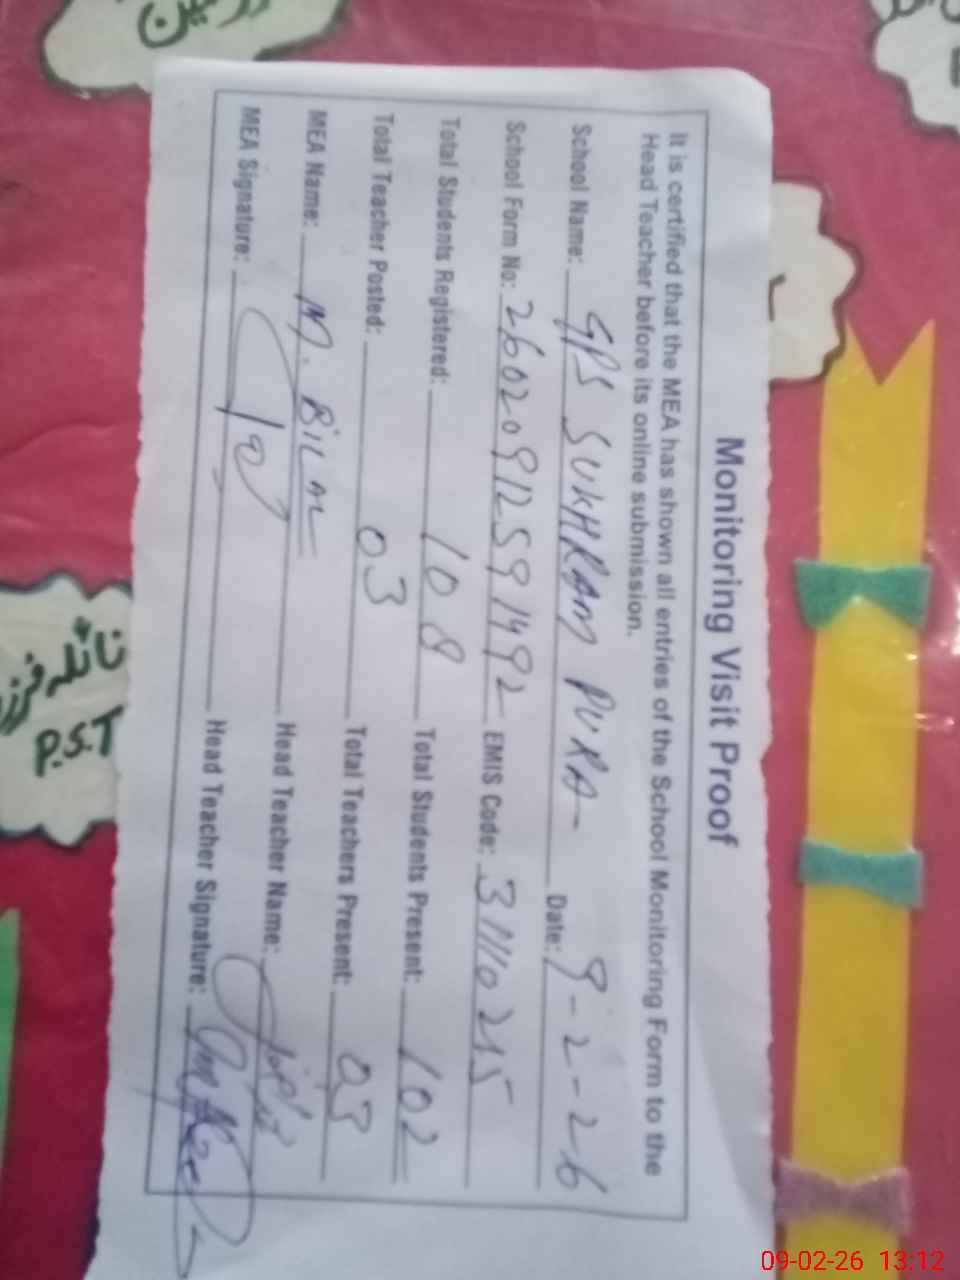 Monitoring Visit Proof
It is certified that the MEA has shown all entries of the School Monitoring Form to the
Head Teacher before its online submission.
School Name: GPS SUKHRAM PURA Date: 9-2-26
School Form No: 26020912591492 EMIS Code: 31110215
Total Students Registered: 108 Total Students Present: 102
Total Teacher Posted: 03 Total Teachers Present: 03
MEA Name: M. Bilal Head Teacher Name:
MEA Signature: Head Teacher Signature:
نائلہ
P.S.T
09-02-26 13:12